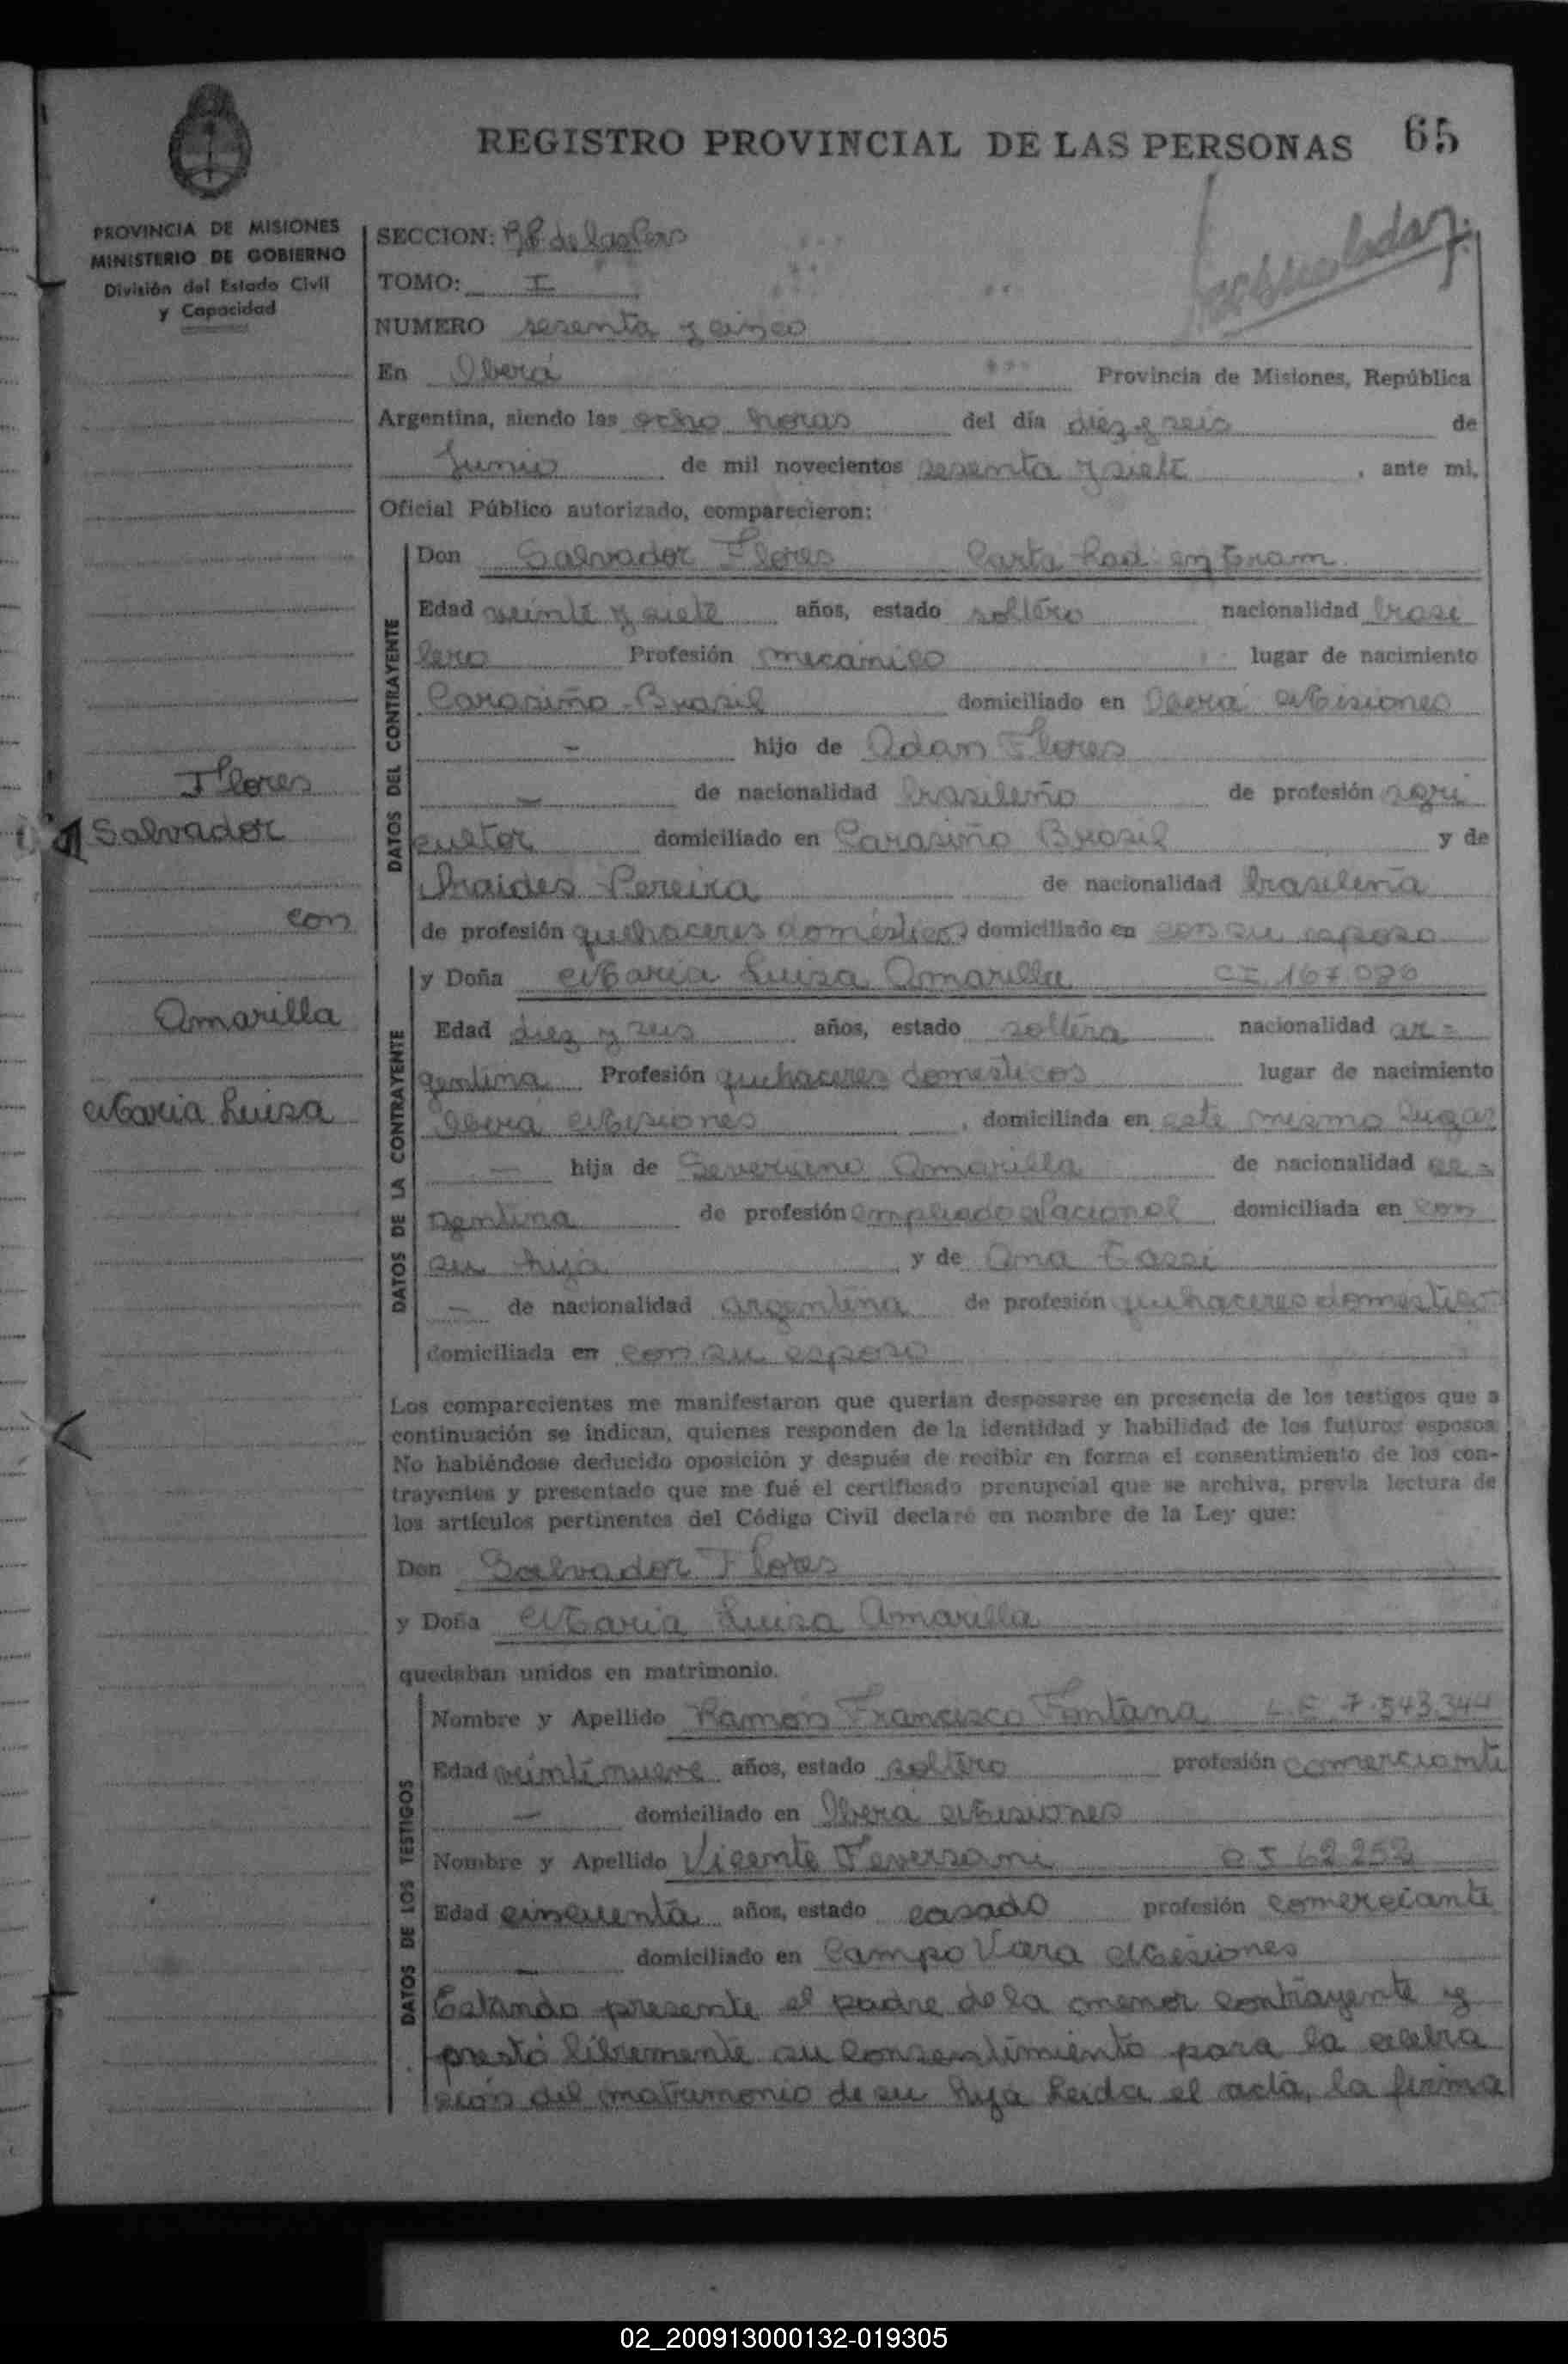 REGISTRO PROVINCIAL DE LAS PERSONAS 65
PROVINCIA DE MISIONES
MINISTERIO DE GOBIERNO
División del Estado Civil
y Capacidad
SECCION: de las Pers
TOMO: I
NUMERO sesenta y cinco
En Oberá Provincia de Misiones, República
Argentina, siendo las ocho horas del día diez y seis de
Junio de mil novecientos sesenta y siete, ante mi,
Oficial Público autorizado, comparecieron:
DATOS DEL CONTRAYENTE
Don Salvador Flores Carta Rad en Tram.
Edad veinte y siete años, estado soltero nacionalidad brasi
lero Profesión mecanico lugar de nacimiento
Carasiño - Brasil domiciliado en Oberá Misiones
- hijo de Adan Flores
- de nacionalidad brasileño de profesión agri
cultor domiciliado en Carasiño Brasil y de
Pereira de nacionalidad brasileña
de profesión quehaceres domésticos domiciliado en con su esposo
Flores
Salvador
con
Amarilla
Maria Luisa
DATOS DE LA CONTRAYENTE
y Doña Maria Luisa Amarilla CI 167.086
Edad diez y seis años, estado soltera nacionalidad ar=
gentina Profesión quehaceres domesticos lugar de nacimiento
Oberá Misiones, domiciliada en este mismo lugar
- hija de Severiano Amarilla de nacionalidad ar=
gentina de profesión empleado Nacional domiciliada en con
su hija y de Ana
- de nacionalidad argentina de profesión quehaceres domestico
domiciliada en con su esposo
Los comparecientes me manifestaron que querían desposarse en presencia de los testigos que a
continuación se indican, quienes responden de la identidad y habilidad de los futuros esposos.
No habiéndose deducido oposición y después de recibir en forma el consentimiento de los con-
trayentes y presentado que me fué el certificado prenupcial que se archiva, previa lectura de
los artículos pertinentes del Código Civil declaré en nombre de la Ley que:
Don Salvador Flores
y Doña Maria Luisa Amarilla
quedaban unidos en matrimonio.
DATOS DE LOS TESTIGOS
Nombre y Apellido Ramón Francisco Fontana L.E 7.543.344
Edad veintinueve años, estado soltero profesión comerciante
- domiciliado en Oberá Misiones
Nombre y Apellido Vicente Teversani CI 62252
Edad cincuenta años, estado casado profesión comerciante
- domiciliado en Campo Viera Misiones
Estando presente el padre de la menor contrayente y
prestó libremente su consentimiento para la celebra
ción del matrimonio de su hija Leida el acta, la firma
02_200913000132-019305